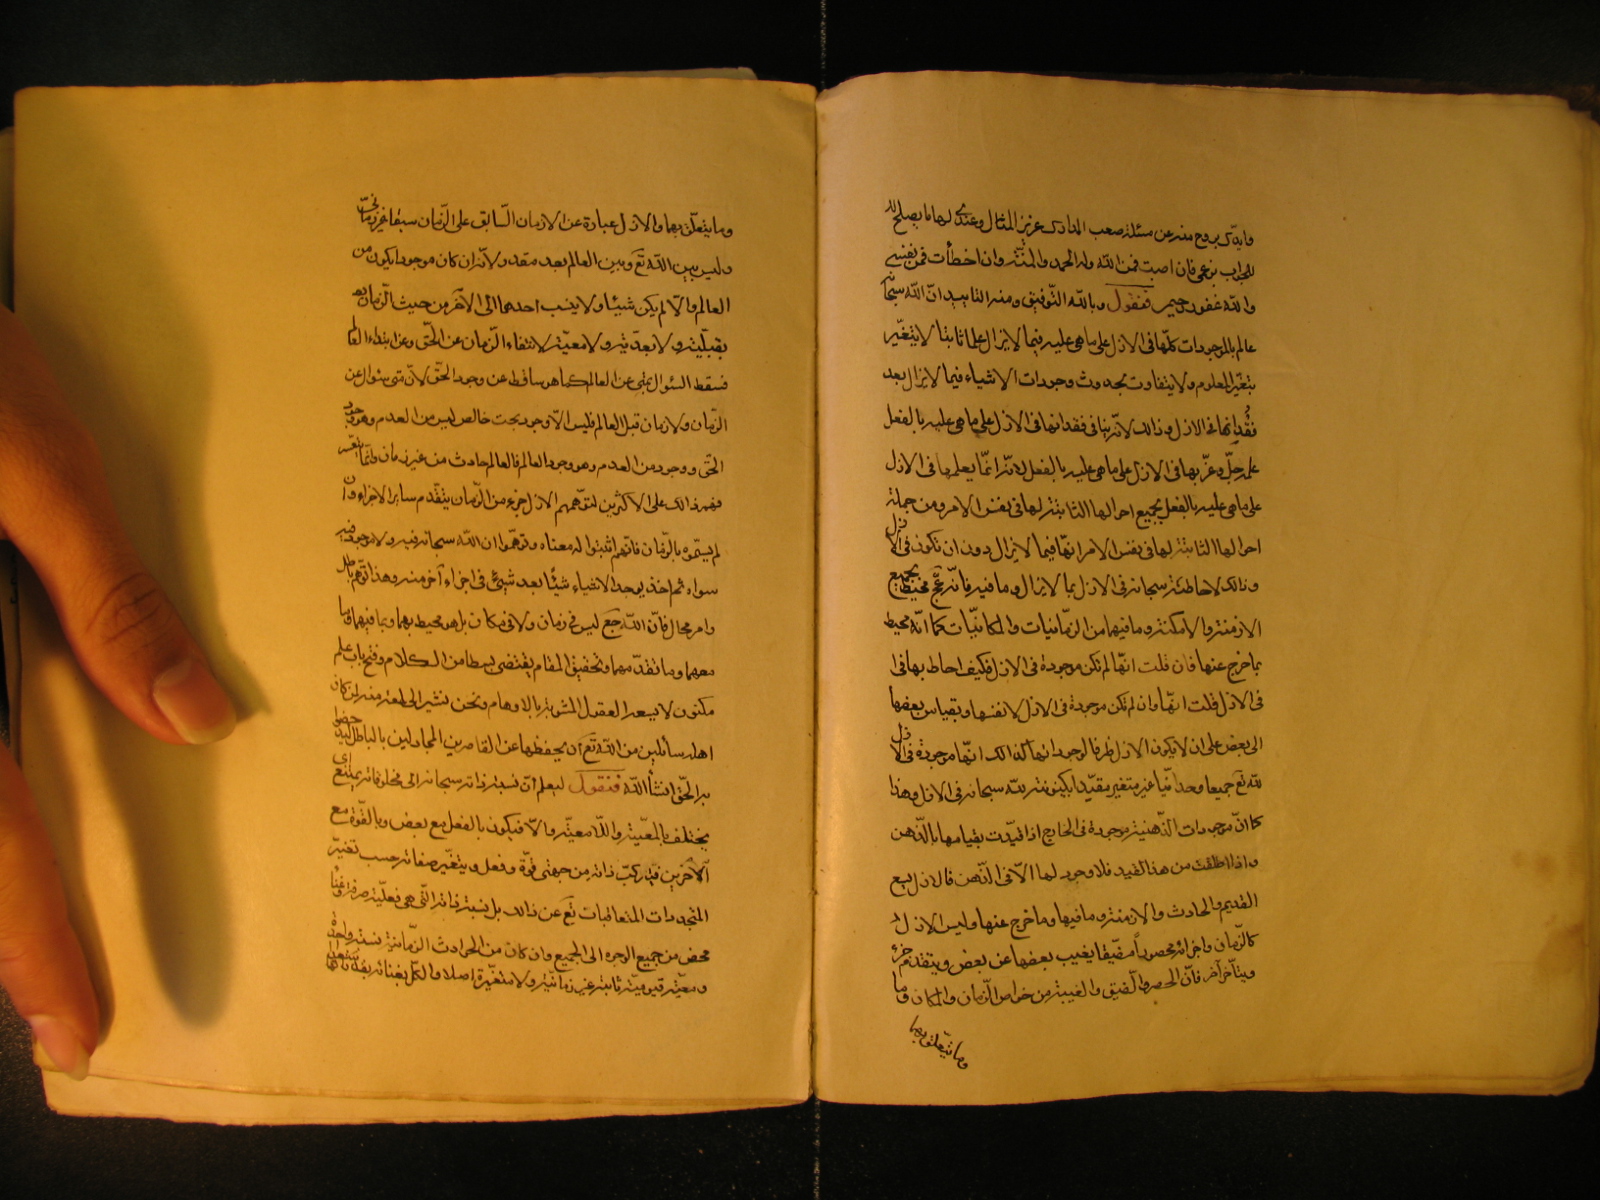 وايدك بروح منه عن مسئلة صعب المدارك عزيز المثال وعندي لها ما يصلح
للجواب بزعمي فان اصبت فمن الله وله الحمد والمنة وان اخطأت فمن نفسي
والله غفور رحيم فنقول وبالله التوفيق ومنه التاييد ان الله سبحانه
عالم بالموجودات كلها في الازل على ما هي عليه فيما لا يزال علما ثابتا لا يتغير
بتغير المعلوم ولا يتفاوت بحدوث وجودات الاشياء فيما لا يزال بعد
فقدانها في الازل وذالك لانه ينافي فقدانها في الازل على ما هي عليه بالفعل
علمه جل وعز بها في الازل على ما هي عليه بالفعل لانه انما يعلمها في الازل
على ما هي عليه بالفعل بجميع احوالها الثابتة لها في نفس الامر ومن جملة
احوالها الثابتة لها في نفس الامر انها فيما لا يزال دون ان تكون في الازل
وذالك لاحاطته سبحانه في الازل بما لا يزال وما فيه فانه عج محيط بجميع
الازمنة والامكنة وما فيهما من الزمانيات والمكانيات كما انه محيط
بما خرج عنها فان قلت انها لم تكن موجودة في الازل فكيف احاط بها في
في الازل قلت انها وان لم تكن موجودة في الازل لانفسها وبقياس بعضها
الى بعض على ان لا يكون الازل ظرفا لوجوداتها كذالك انها موجودة في الازل
لله تع جميعا وحدانيا غير متغير بقيد ابكينونته لله سبحانه في الازل وهذا
كما ان موجودات الذهنية موجودة في الخارج اذا قيدت بقيامها بالذهن
واذا اطلقت من هذا القيد فلا وجود لها الا في الذهن فالازل يسع
القديم والحادث والازمنة وما فيها وما خرج عنها وليس الازل
كالزمان واجزائه محصورا مضيقا يغيب بعضها عن بعض ويتقدم جزء
ويتأخر آخر فان الحصر والضيق والغيبة من خواص الزمان والمكان وما
وما يتعلق بهما
وما يتعلق بهما والازل عبارة عن الازمان السابق على الزمان سبقا غير زماني
وليس بين الله تع وبين العالم بعد مقدر لانه ان كان موجودا يكون من
العالم والا لم يكن شيئا ولا ينسب احدهما الى الآخر من حيث الزمان
بقبلية ولا بعدية ولا معية لانتفاء الزمان عن الحق وعن ابتداء العالم
فسقط السؤال بمتى عن العالم كما هو ساقط عن وجود الحق لان متى سئوال عن
الزمان ولا زمان قبل العالم فليس الا وجود بحت خالص ليس من العدم وهو وجود
الحق ووجود من العدم وهو وجود العالم فالعالم حادث من غير زمان وانما يتعسر
فهم ذالك على الاكثرين لتوهمهم الازل جزء من الزمان يتقدم ساير الاجزاء وان
لم يسموه بالزمان فانهم اثبتوا له معناه وتوهموا ان الله سبحانه فيه ولا موجود فيه
سواه ثم اخذ يوجد الاشياء شيئا بعد شيئ في اجزاء آخر منه وهذا توهم باطل
وامر محال فان الله جع ليس في زمان ولا في مكان بل هو محيط بهما وبما فيهما وما
معهما وما تقدمهما وتحقيق المقام يقتضي بسطا من الكلام وفتح باب علم
مكنون لا يسعه العقول المشوبة بالاوهام ونحن نشير الى لمعة منه لمن كان
اهله سائلين من الله تع ان يحفظها عن القاصرين المجادلين بالباطل ليدحضوا
به الحق انشأ الله فنقول ليعلم ان نسبة ذاته سبحانه الى مخلوقاته يمتنع ان
يختلف بالمعية واللا معية والا فيكون بالفعل مع بعض وبالقوة مع
آلاخرين فيتركب ذاته من جهتي قوة وفعل ويتغير صفاته حسب تغير
المتجددات المتعاقبات تع عن ذالك بل نسبة ذاته التي هي فعلية صرفة وغناء
محض من جميع الوجوه الى الجميع وان كان من الحوادث الزمانية نسبة واحدة
ومعية قيومية ثابتة غير زمانية ولا متغيرة اصلا والكل بغنائه بقدر